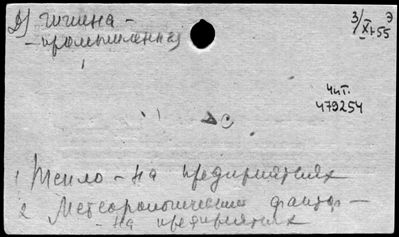 гигиена -
- промышленная
3/XI-55 Э
Чит.
479254
1 Тепло - на предприятиях
2 Метеорологические факторы -
- на предприятиях